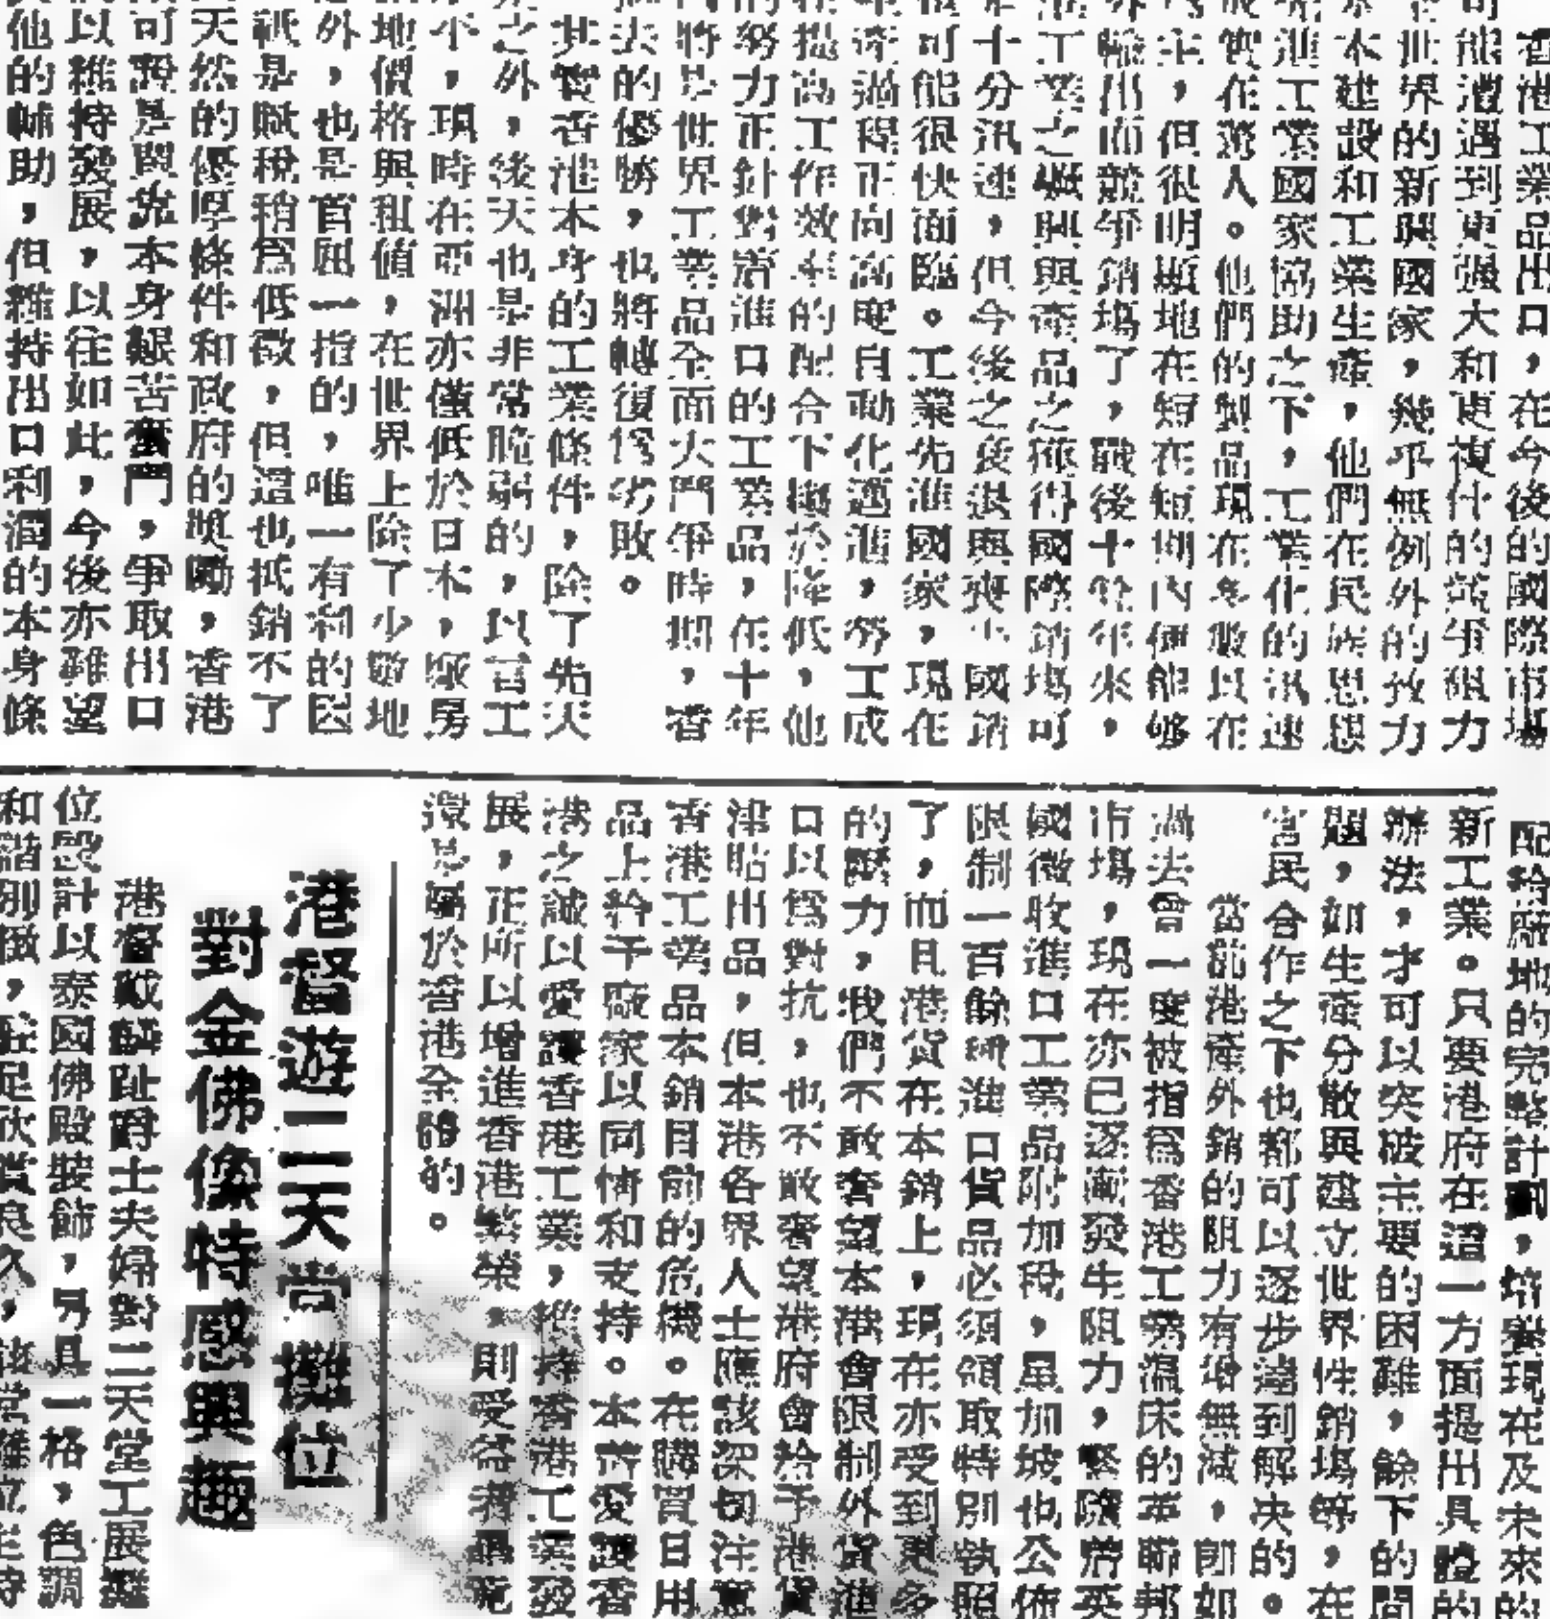 香港工業品出口，在今後的國際市場
可能遭遇到更强大和更複什的競爭組力
世界的新興國家，幾乎無例外的致力
本建設和工業生產，他們在民族思想
進工業國家協助之下，工業化的迅速
實在驚人。他們的製品現在多數以在
主，但很明顯地在短在短期內便能够
輸出而競爭銷塲了，戰後十餘年來，
工業之興與產品之獲得國際銷塲可
十分汛速，但今後之衰退與喪失國銷
可能很快面臨。工業先進國家，現在
率過程正向高度自動化邁進，勞工成
提高工作效率的配合下趨於降低，他
的努力正針對着進口的工業品，在十年
將是世界工業品全面大鬥爭時期，香
過去的優勝，也將轉復爲劣敗。
其實香港本身的工業條件，除了先天
之外，後天也是非常脆弱的，以言工
水，現時在亞洲亦僅低於日本，廠房
地價格與租值，在世界上除了少數地
外，也是首屈一指的，唯一有利的因
祇是賦稅稍爲低微，但這也抵銷不了
天然的優厚條件和政府的獎勵，香港
可說是閗先本身艱苦奮鬥，爭取出口
以維持發展，以往如此，今後亦難望
他的輔助，但維持出口利潤的本身條
配給廠地的完整計劃，培養現在及未來的
新工業。只要港府在這一方面提出具體的
辦法，才可以突破主要的困難，餘下的問
題，如生產分散與建立世界性銷塲等，在
官民合作之下也都可以逐步達到解决的。
當前港產外銷的阻力有增無減，卽如
過去曾一度被指爲香港工業温床的英聯邦
市塲，現在亦已逐漸發生阻力，繁隨於英
國徵收進口工業品附加段，星加坡也公佈
限制一百餘種進口貨品必須領取特別執照
了，而且港貨在本銷上，現在亦受到更多
的壓力，我們不敢奢望本港會限制外貨進
口以爲對抗，也不敢奢望港府會給予港貨
津貼出品，但本港各界人士應該深切注意
香港工業品本銷目前的危機。在購買日用
品上給予廠家以同情和支持。本着愛護香
港之誠以愛護香港工業，維持香港工業發
展，正所以增進香港繁榮，則受益者
還是屬於香港全體的。
港督遊二天尚攤位
對金佛像特感興趣
港督戴麟趾爵士夫婦對二天堂工展攤
位設計以泰國佛殿裝飾，另具一格，色調
和諧別緻，駐足欣賞良久，